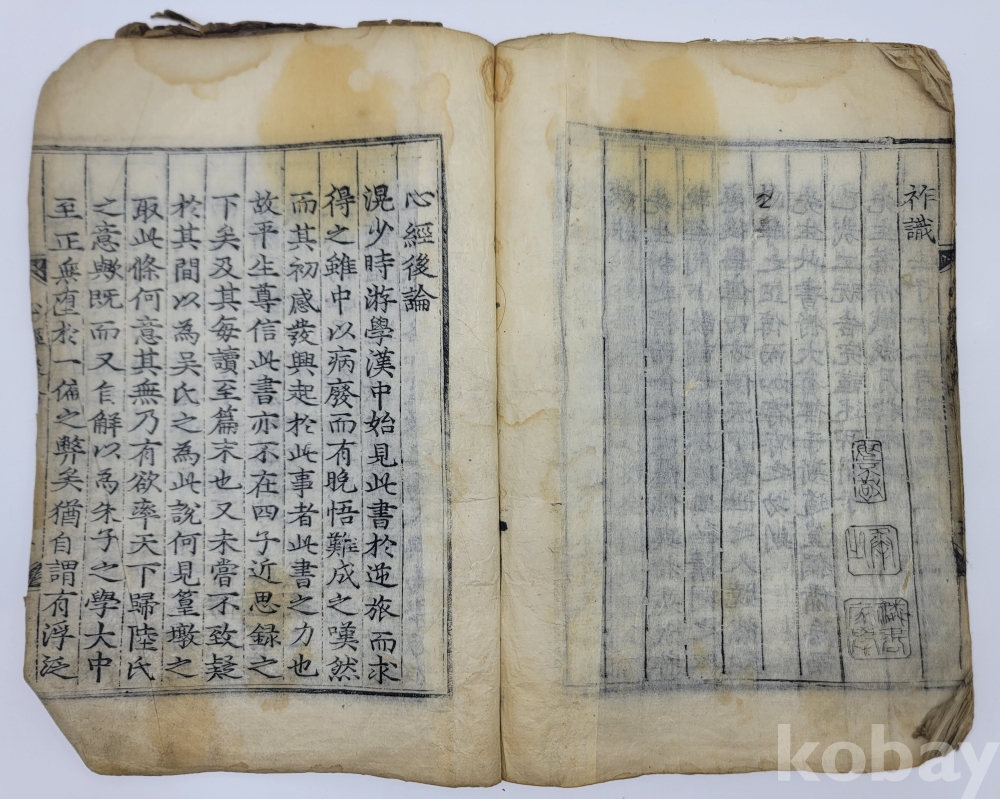 祚識
心經後論
滉少時游學漢中始見此書於逆旅而求
得之雖中以病廢而有晚悟難成之嘆然
而其初感發興起於此事者此書之力也
故平生尊信此書亦不在四子近思録之
下矣及其每讀至篇末也又未嘗不致疑
於其間以為吳氏之為此說何見篁墩之
取此條何意其無乃有欲率天下歸陸氏
之意歟既而又自解以為朱子之學大中
至正無堕於一偏之弊矣猶自謂有浮泛
kobay